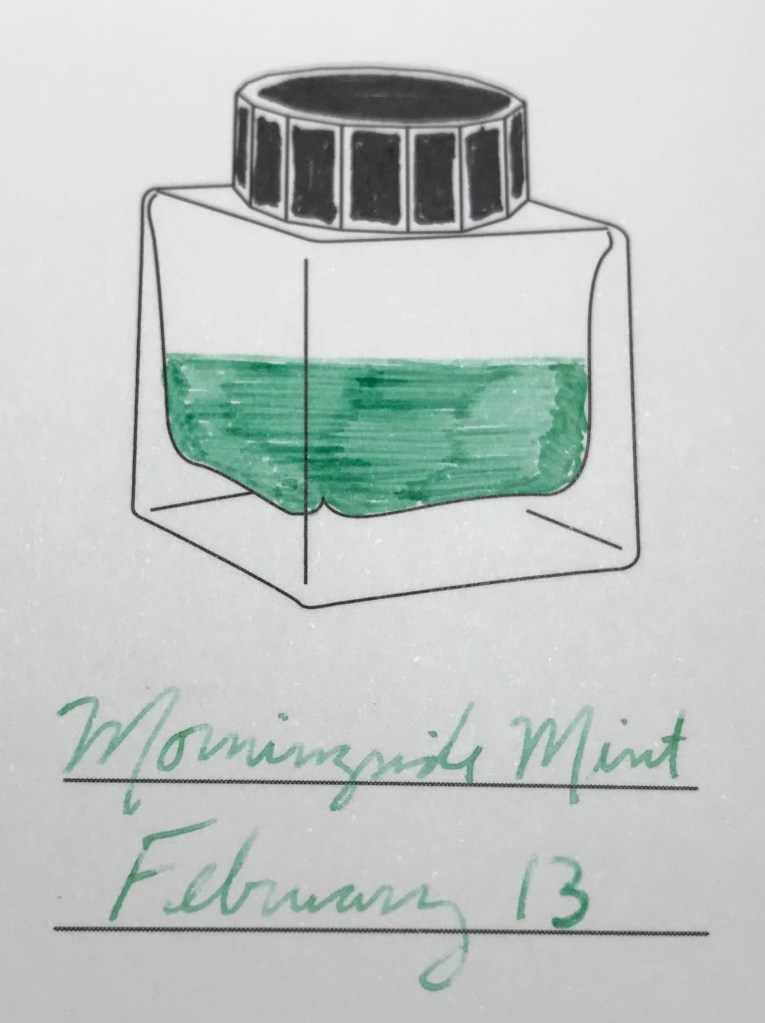 Morningside Mint
February 13